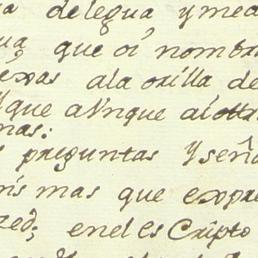 delegua ymed
que oi nombr
exas ala orilla de
que aunque al otro
mas:
preguntas Y señ
mas que expre
enel escripto